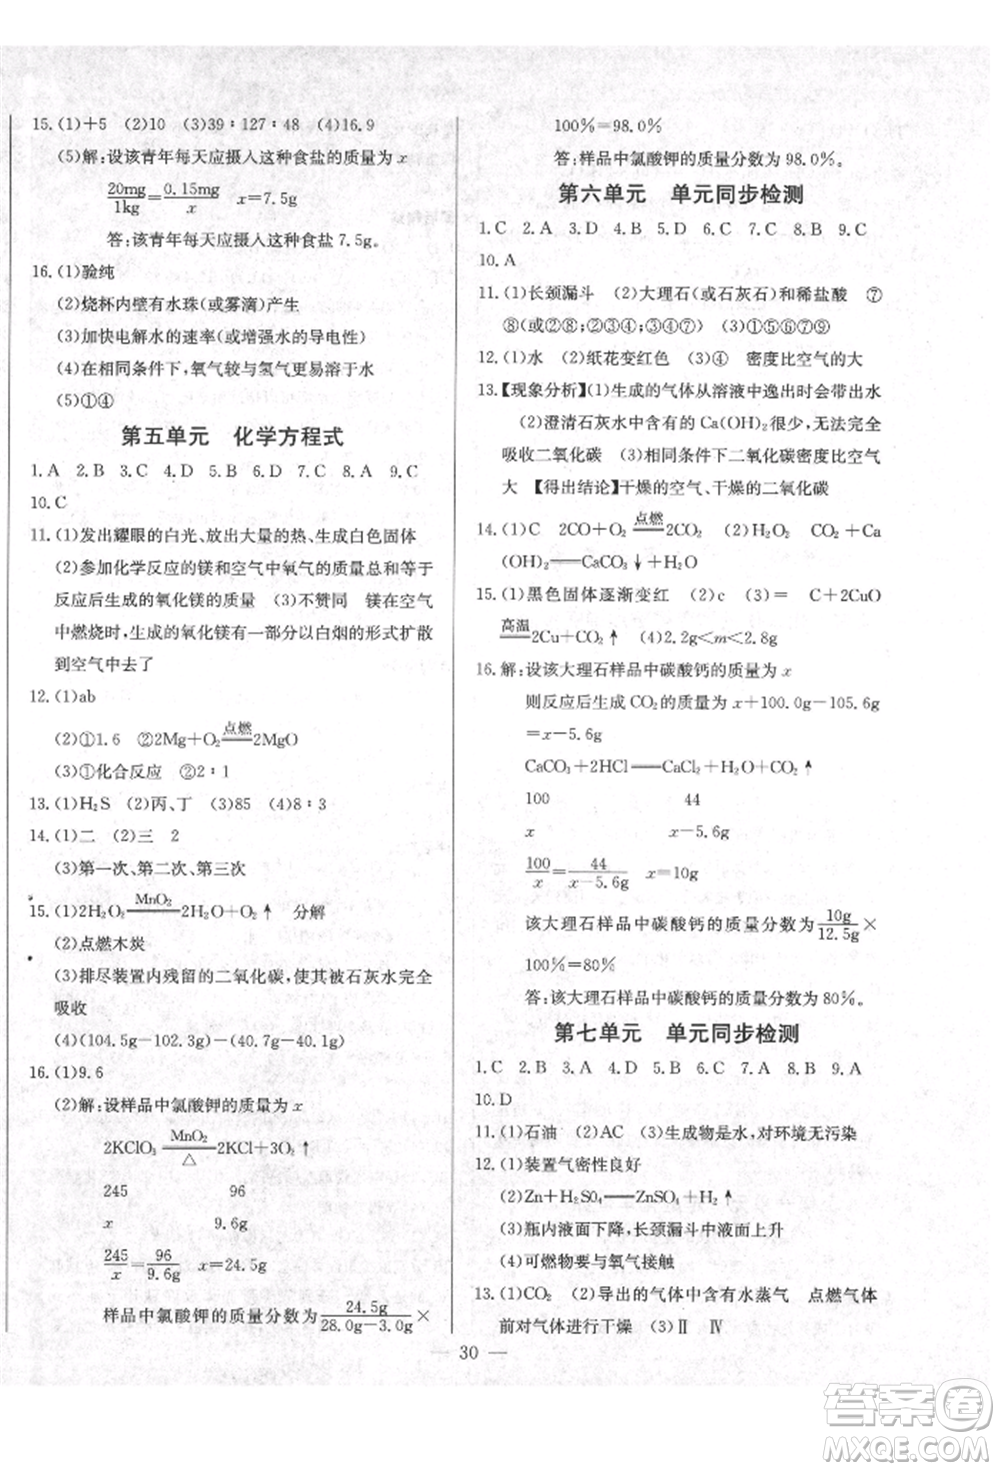 15. (1)+5　(2)10　(3)39∶127∶48　(4)16.9
(5)解:设该青年每天应摄入这种食盐的质量为 x
20mg/1kg = 0.15mg/x　x=7.5g
答:该青年每天应摄入这种食盐 7.5g。
16. (1)验纯
(2)烧杯内壁有水珠(或雾滴)产生
(3)加快电解水的速率(或增强水的导电性)
(4)在相同条件下,氧气较与氢气更易溶于水
(5)①④
第五单元　化学方程式
1. A　2. B　3. C　4. D　5. B　6. D　7. C　8. A　9. C
10. C
11. (1)发出耀眼的白光、放出大量的热、生成白色固体
(2)参加化学反应的镁和空气中氧气的质量总和等于
反应后生成的氧化镁的质量　(3)不赞同　镁在空气
中燃烧时,生成的氧化镁有一部分以白烟的形式扩散
到空气中去了
12. (1)ab
(2)①1.6　②2Mg+O₂ 点燃══ 2MgO
(3)①化合反应　②2∶1
13. (1)H₂S　(2)丙、丁　(3)85　(4)8∶3
14. (1)二　(2)三　2
(3)第一次、第二次、第三次
15. (1)2H₂O₂ MnO₂══ 2H₂O+O₂↑　分解
(2)点燃木炭
(3)排尽装置内残留的二氧化碳,使其被石灰水完全
吸收
(4)(104.5g-102.3g)-(40.7g-40.1g)
16. (1)9.6
(2)解:设样品中氯酸钾的质量为 x
2KClO₃ MnO₂══△ 2KCl+3O₂↑
245　96
x　9.6g
245/x = 96/9.6g　x=24.5g
样品中氯酸钾的质量分数为 24.5g/(28.0g-3.4g) ×
100%=98.0%
答:样品中氯酸钾的质量分数为 98.0%。
第六单元　单元同步检测
1. C　2. A　3. D　4. B　5. A　6. D　7. C　8. B　9. C
10. A
11. (1)长颈漏斗　(2)大理石(或石灰石)和稀盐酸　⑦
⑧(或②⑤⑥⑧)　(3)①⑤⑦⑨
12. (1)水　(2)纸花变红色　(3)④　密度比空气的大
13. 【现象分析】(1)生成的气体从溶液中逸出时会带出水
(2)澄清石灰水中含有的 Ca(OH)₂很少,无法完全
吸收二氧化碳　(3)相同条件下二氧化碳密度比空气
大　【得出结论】干燥的空气、干燥的二氧化碳
14. (1)C　2CO+O₂ 点燃══ 2CO₂　(2)H₂O₂　CO₂+Ca
(OH)₂══CaCO₃↓+H₂O
15. (1)黑色固体逐渐变红　(2)c　(3)═　C+2CuO
高温══2Cu+CO₂↑　(4)2.2g<m<2.8g
16. 解:设该大理石样品中碳酸钙的质量为 x
则反应后生成 CO₂的质量为 x+100.0g-105.6g
=x-5.6g
CaCO₃+2HCl══CaCl₂+H₂O+CO₂↑
100　44
x　x-5.6g
100/x = 44/(x-5.6g)　x=10g
该大理石样品中碳酸钙的质量分数为 10g/12.5g ×
100%=80%
答:该大理石样品中碳酸钙的质量分数为 80%。
第七单元　单元同步检测
1. C　2. B　3. A　4. D　5. A　6. C　7. B　8. D　9. C
10. D
11. (1)石油　(2)AC　(3)生成物是水,对环境无污染
12. (1)装置气密性良好
(2)Zn+H₂SO₄══ZnSO₄+H₂↑
(3)瓶内液面下降,长颈漏斗中液面上升
(4)可燃物要与氧气接触
13. (1)CO₂　(2)导出的气体中含有水蒸气　点燃气体
前对气体进行干燥　(3)Ⅱ　Ⅳ
— 30 —
答案圈
MXQE.COM